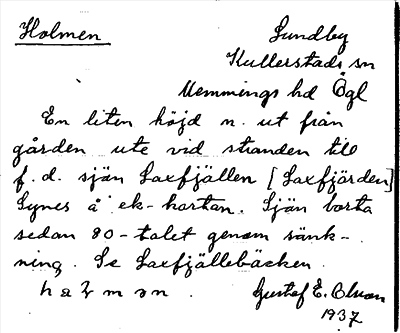 Holmen
Sundby
Kullerstads sn
Memmings hd Ögl
En liten höjd n. ut från
gården ute vid stranden till
f.d. sjön Laxfjällen [Laxfjärden]
Synes å ek-kartan. Sjön borta
sedan 80-talet genom sänk-
ning. Se Laxfjällebäcken.
Gustaf E. Olsson
1937